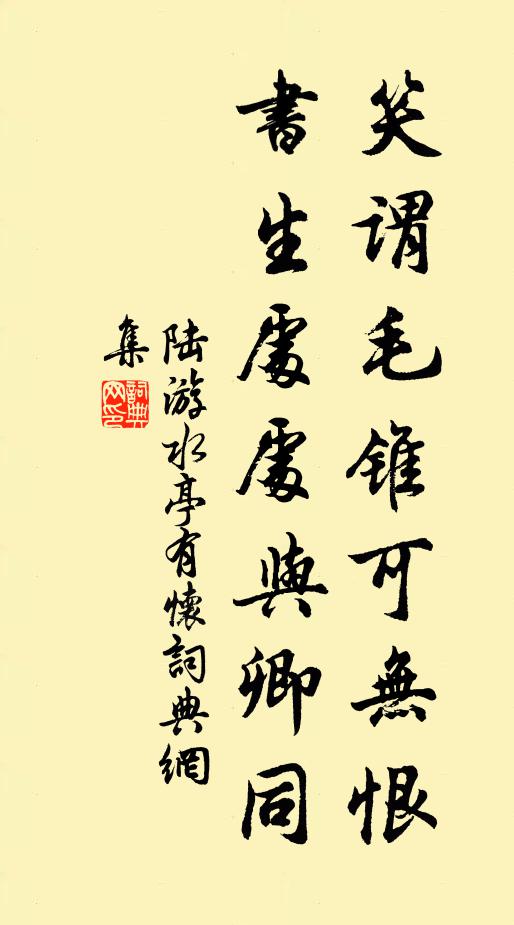 笑謂毛錐可無恨
書生處處與卿同
陸游水亭有懷詞典網
集
詞典
网印